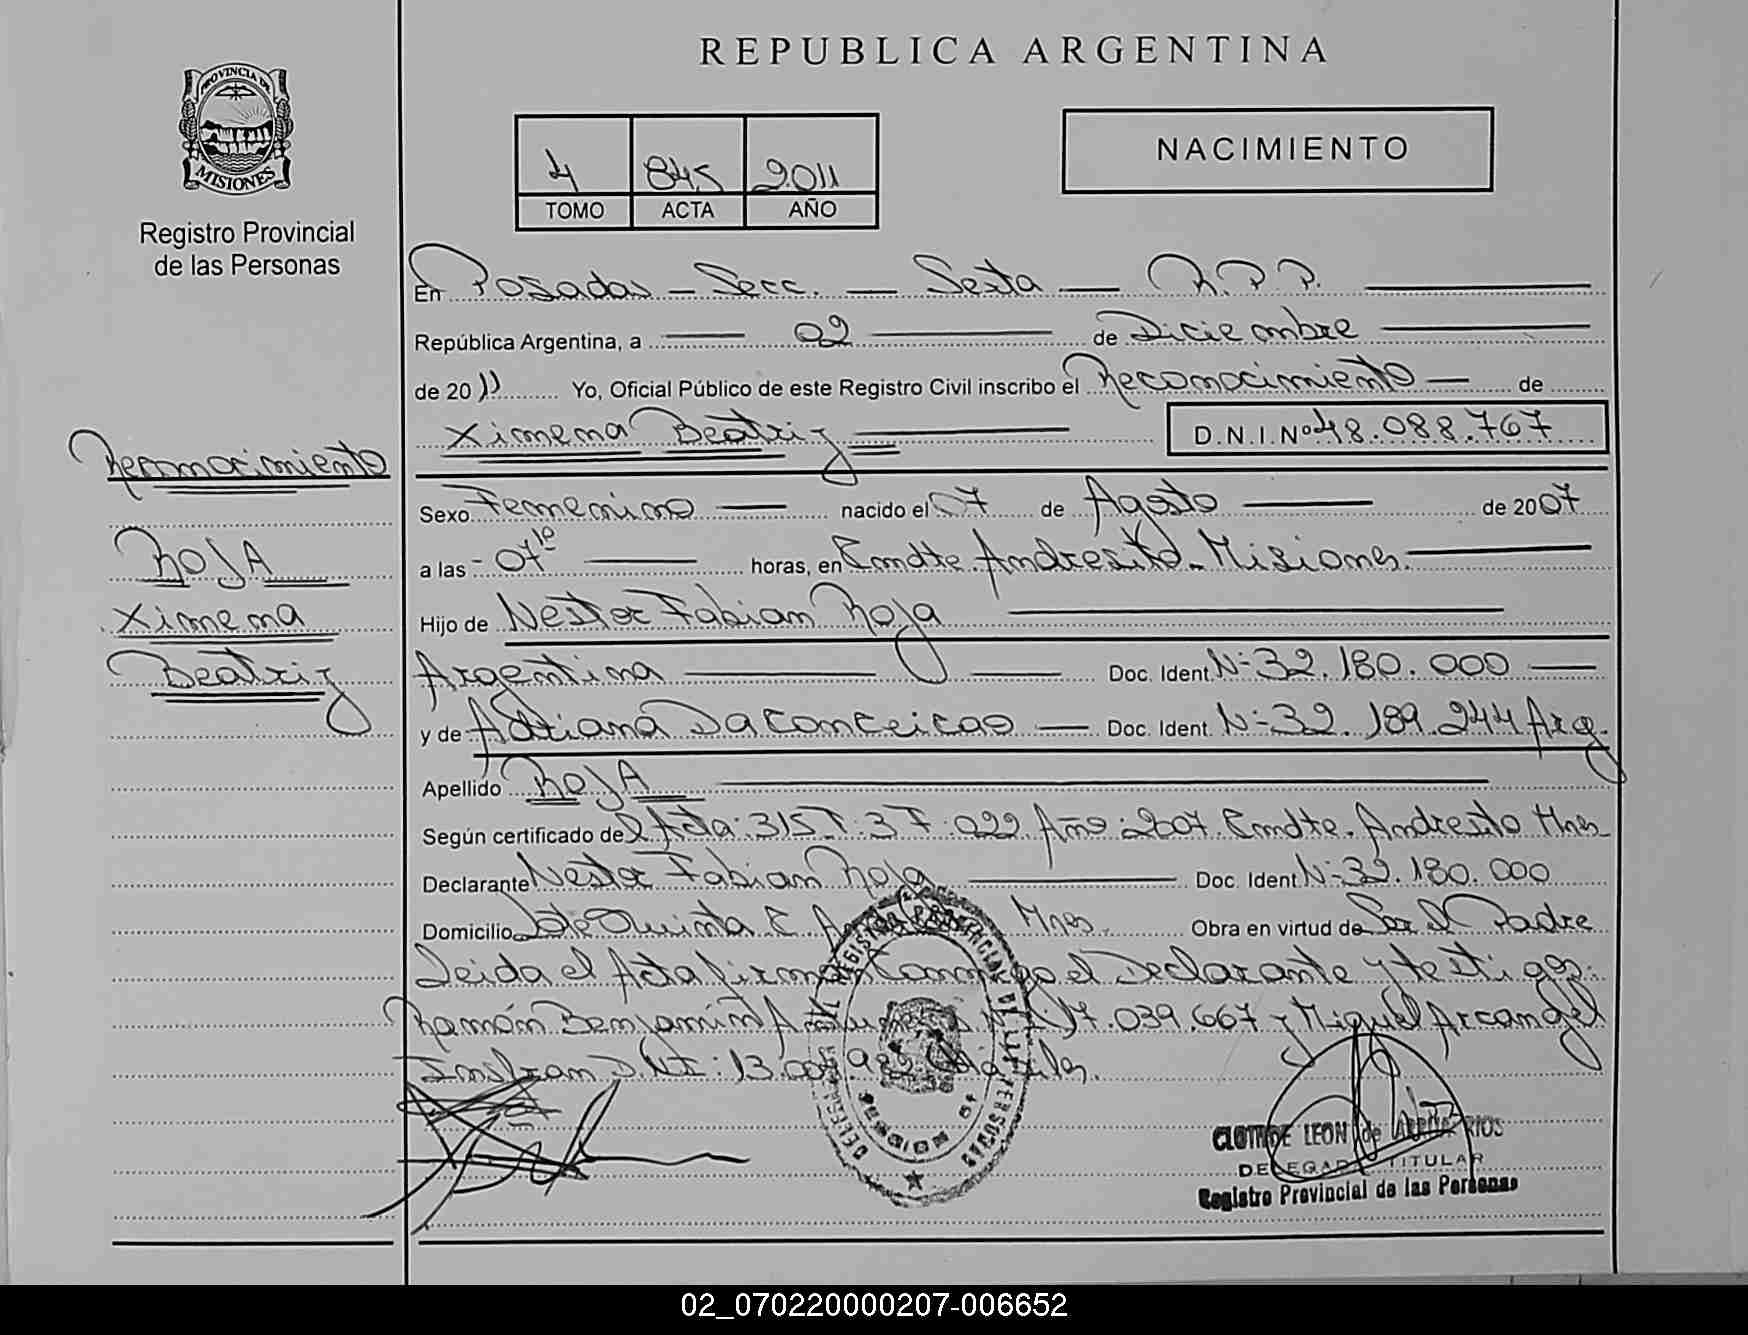 REPUBLICA ARGENTINA
PROVINCIA DE
MISIONES
Registro Provincial
de las Personas
4 845 2011
TOMO ACTA AÑO
NACIMIENTO
En Posadas - Secc. - Sexta - R.P.P.
República Argentina, a 02 de Diciembre
de 2011 Yo, Oficial Público de este Registro Civil inscribo el Reconocimiento de
Ximena Beatriz D.N.I.Nº 48.088.767
Reconocimiento
ROJA
Ximena
Beatriz
Sexo Femenino nacido el 07 de Agosto de 2007
a las - 07 10 horas, en Cmdte. Andresito - Misiones.
Hijo de Nestor Fabian Roja
Argentina Doc. Ident. Nº 32.180.000
y de Adriana Da Conceicao Doc. Ident. Nº 32.189.244 Arg.
Apellido ROJA
Según certificado de Acta: 315 T: 3 F: 022 Año: 2007 Cmdte. Andresito Mnes
Declarante Nestor Fabian Roja Doc. Ident. Nº 32.180.000
Domicilio Lote Quinta C. Mnes. Obra en virtud de Ser el Padre
Leida el Acta firman Conmigo el Declarante y testigos:
Ramón Benjamin 17.039.667 y Miguel Arcangel
Insfran D.N.I: 13.
CLOTILDE LEON de RIOS
DELEGADA TITULAR
Registro Provincial de las Personas
02_070220000207-006652